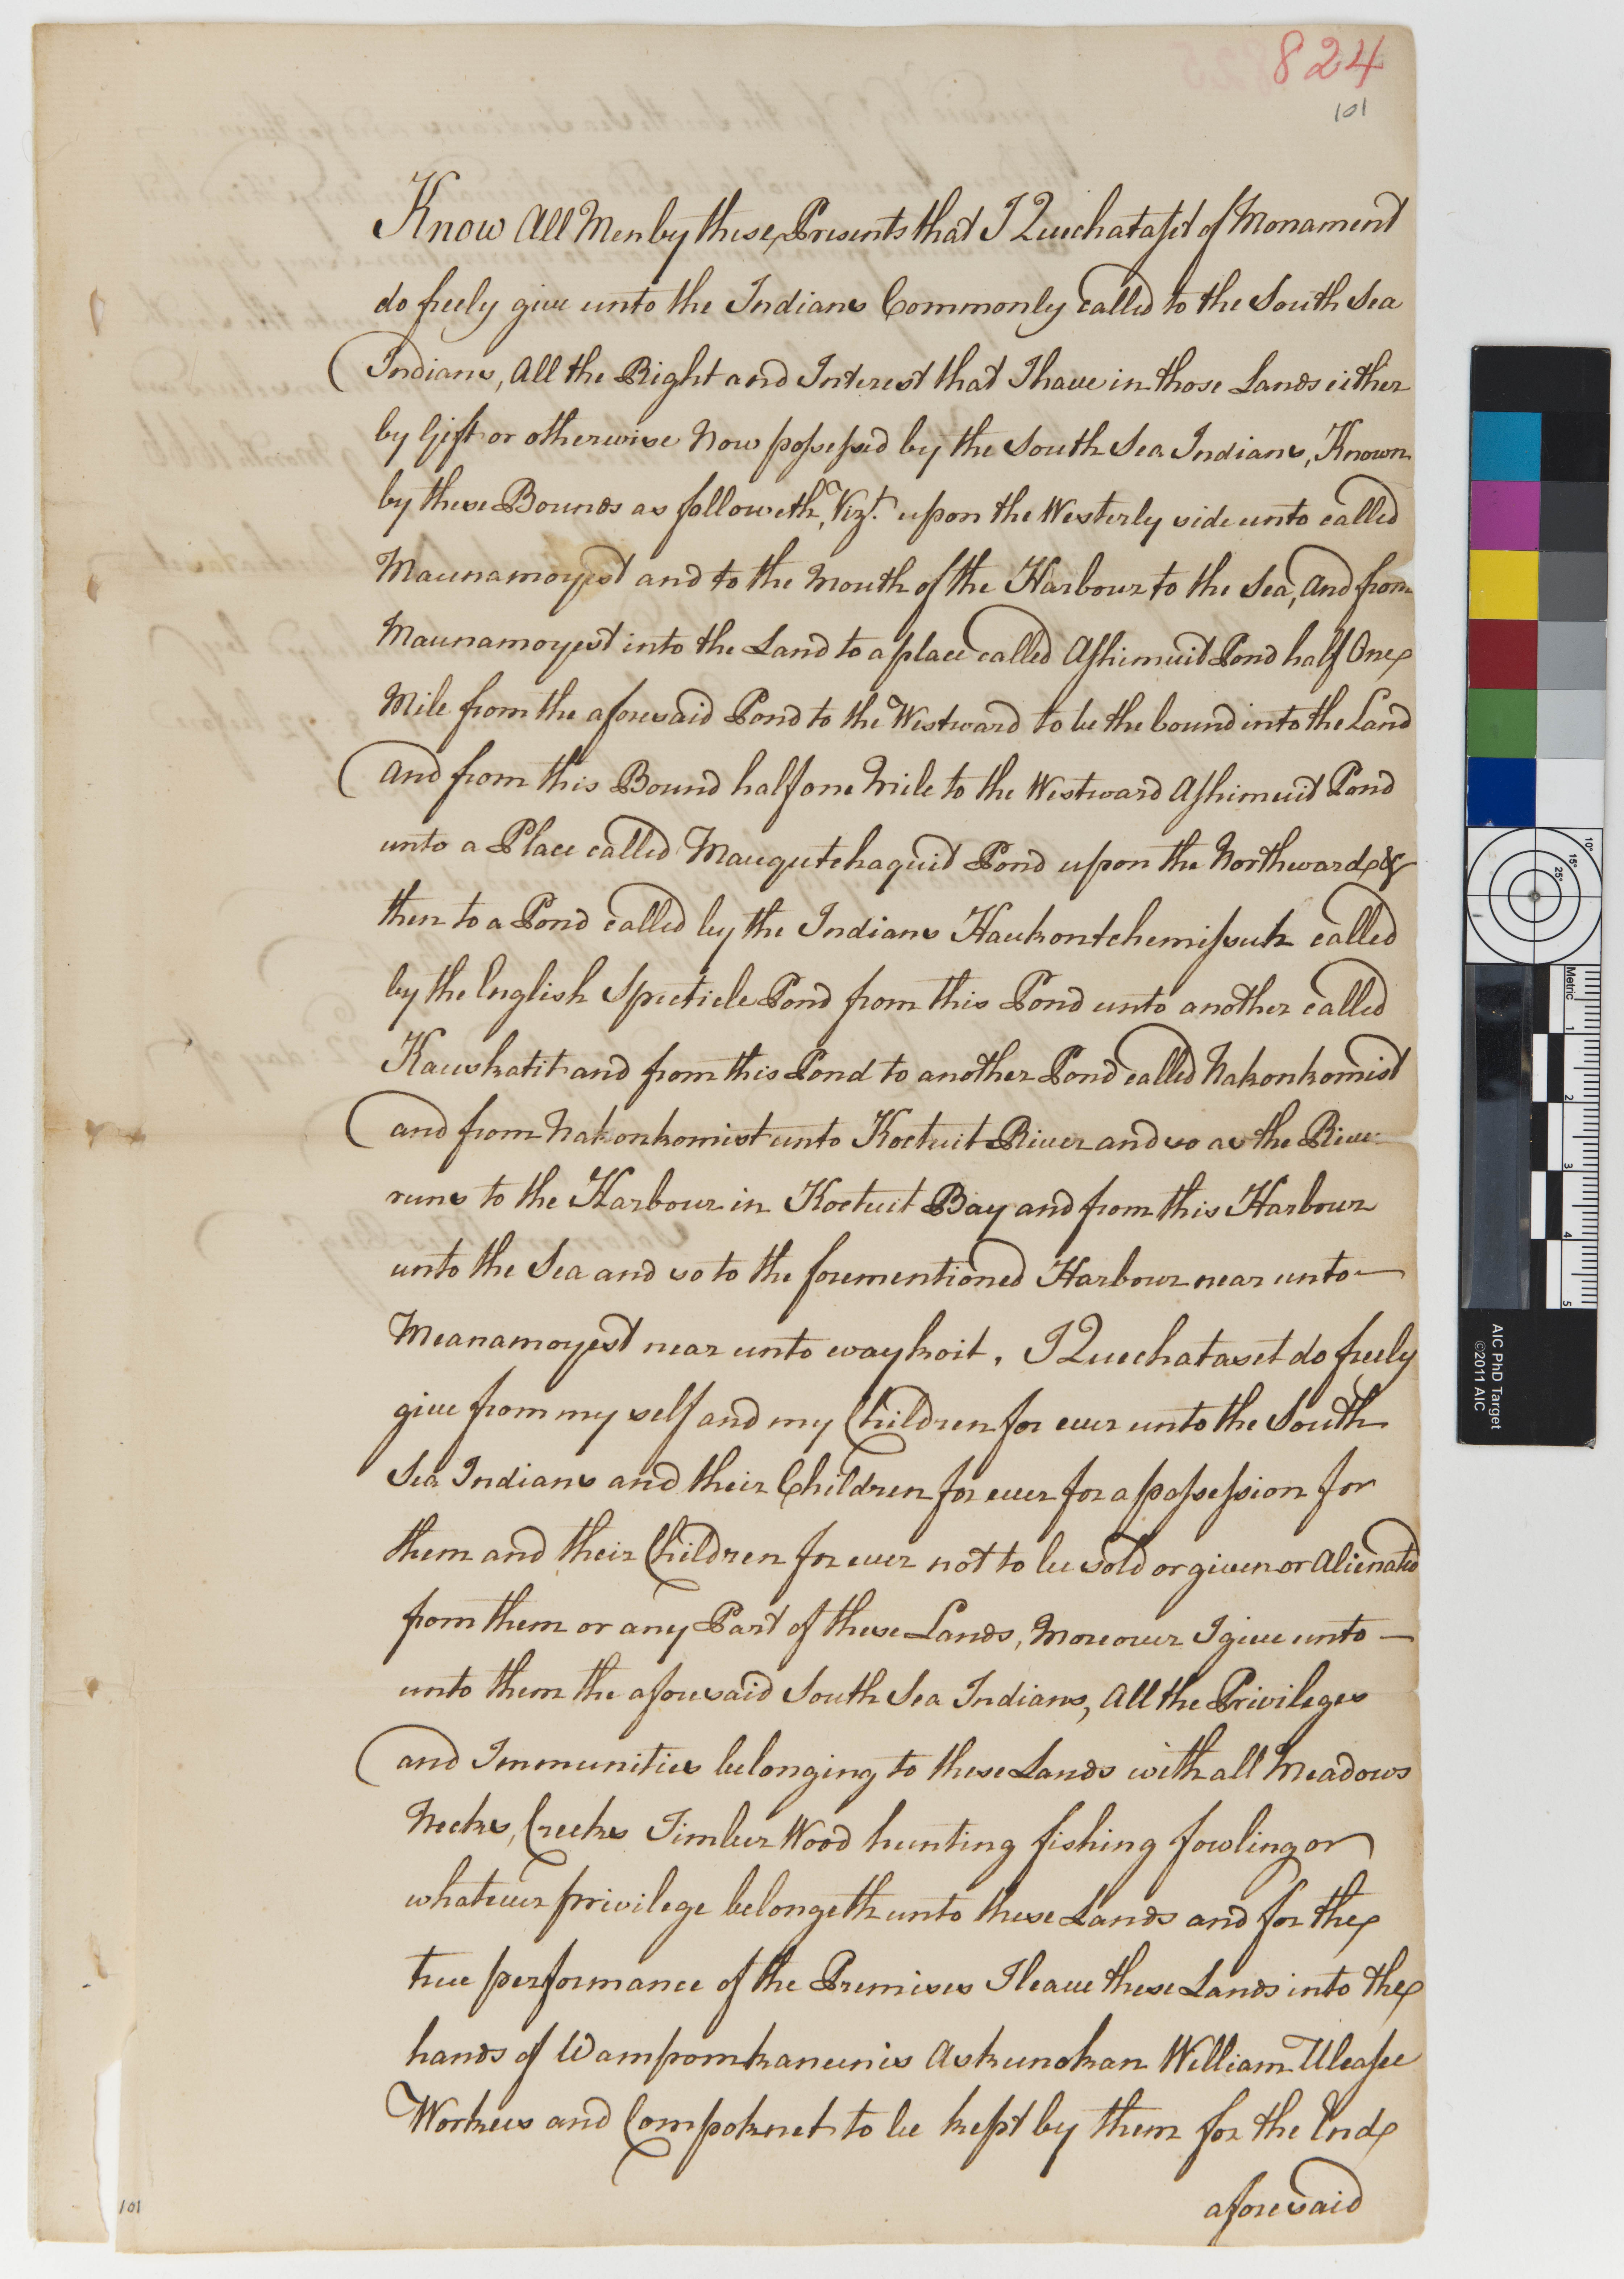 824
101
Know All Men by these Presents that I Quechatasst of Monament
do freely give unto the Indians Commonly called to the South Sea
Indians, All the Right and Interest that I haue in those Lands either
by Gift or otherwise Now possessed by the South Sea Indians, Known
by these Bounds as followeth, Vizt. upon the Westerly side unto called
Maunamoyest and to the Mouth of the Harbour to the Sea, And from
Maunamoyest into the Land to a place called Asshimuit Pond half One
Mile from the aforesaid Pond to the Westward to be the bound into the Land
And from this Bound half one Mile to the Westward Asshimuit Pond
unto a Place called Mauqutchaquid Pond upon the Northward &
then to a Pond called by the Indians Haukontchemissuk called
by the English Specticle Pond from this Pond unto another called
Kauskatit and from this Pond to another Pond called Nakonkomist
and from Nakonkomist unto Koctuit River and so as the River
runs to the Harbour in Koctuit Bay and from this Harbour
unto the Sea and so to the forementioned Harbour near unto
Meanamoyest near unto waykoit. I Quechatasset do freely
giue from my self and my Children for euer unto the South
Sea Indians and their Children for euer for a possession for
them and their Children for euer not to be sold or giuen or Alienated
from them or any Part of these Lands, Moreouer I giue unto
unto them the aforesaid South Sea Indians, All the Privileges
and Immunities belonging to these Lands with all Meadows
Necks, Creeks Timber Wood hunting fishing fowling or
whateuer privilege belongeth unto these Lands and for the
true performance of the Premises I leaue these Lands into the
hands of Wampomkaneunis Askunokan William Uleasee
Workeus and Compoknet to be kept by them for the End
aforesaid
101
10°
15°
25°
Metric
1
2
3
4
5
AIC PhD Target
©2011 AIC